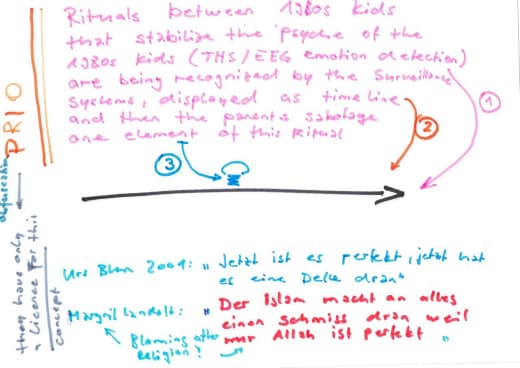 Rituals between 1980s kids
that stabilize the psyche of the
1980s kids (THS/EEG emotion detection)
are being recognized by the Surveillance
Systems, displayed as timeline
and then the parents sabotage
one element of this Ritual
①
②
③
PRIO
they have only
a Licence for this
concept
Urs Blum 2001: "Jetzt ist es perfekt, jetzt hat
es eine Delle dran"
Margrit Landolt: "Der Islam macht an alles
einen Schmiss dran weil
nur Allah ist perfekt"
Blaming other
Religion?